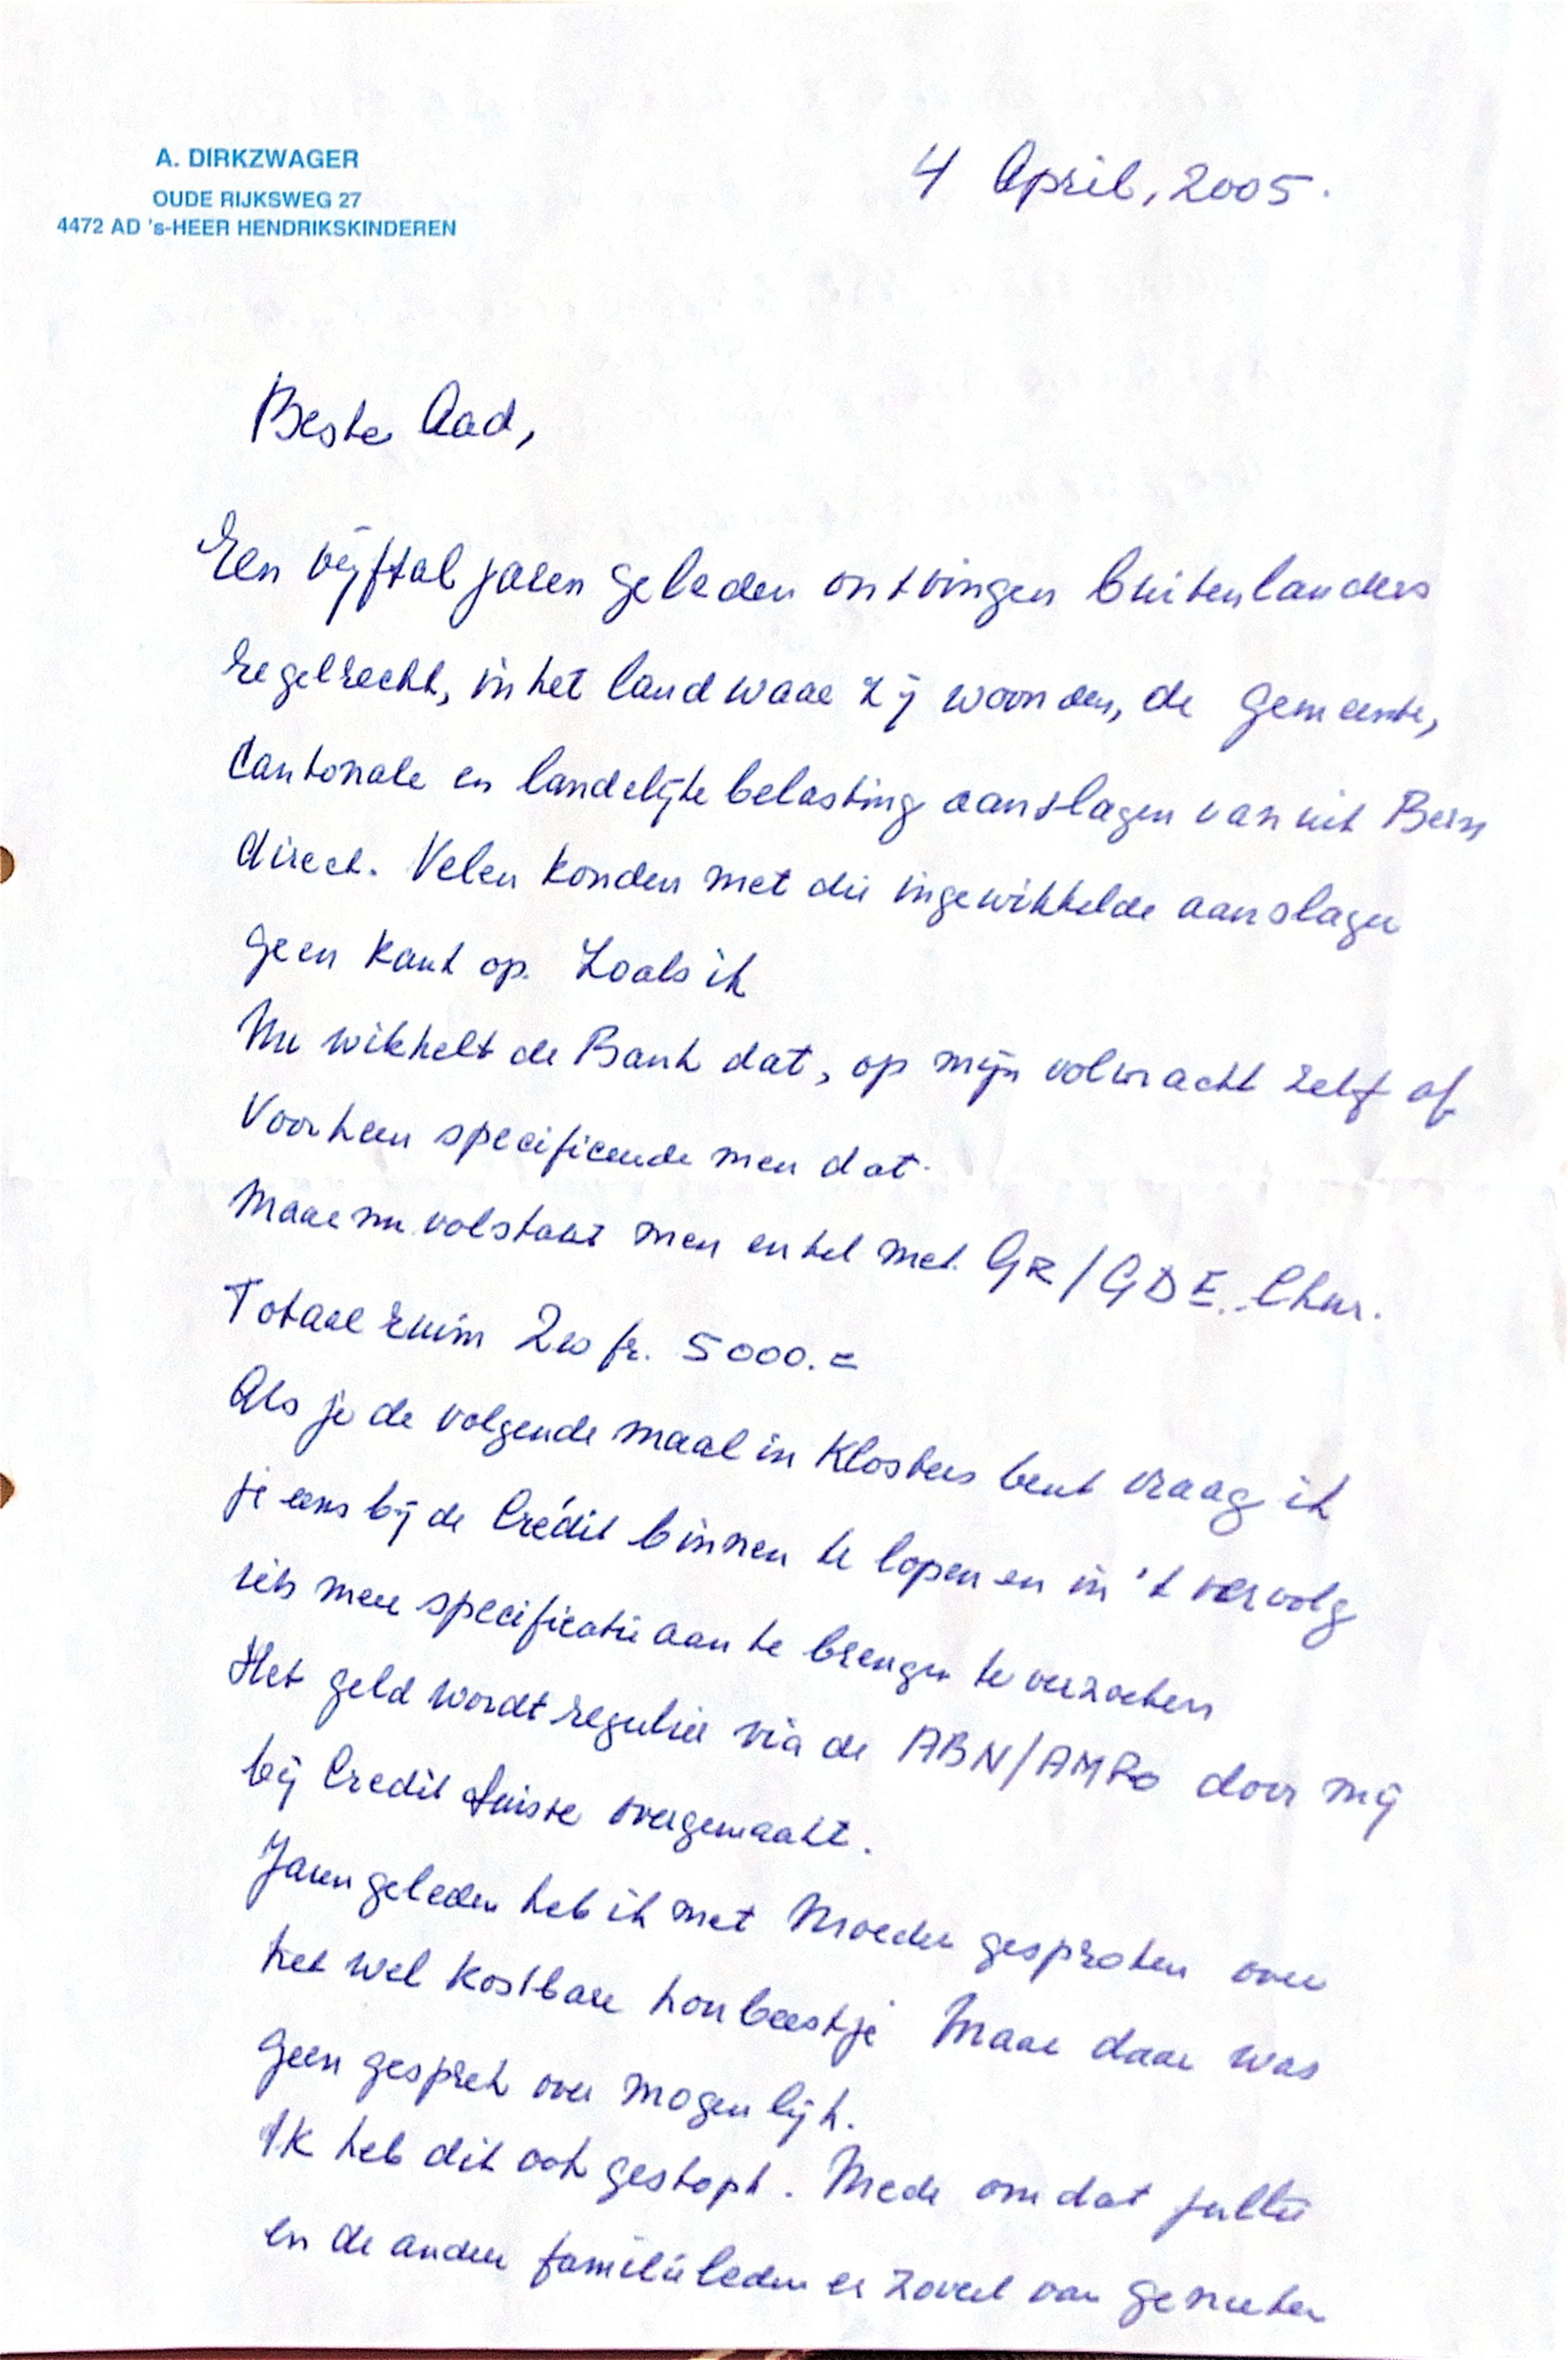 A. DIRKZWAGER
OUDE RIJKSWEG 27
4472 AD 's-HEER HENDRIKSKINDEREN
4 April, 2005.
Beste Aad,
Een vijftal jaren geleden ontvingen buitenlanders
regelrecht, in het land waar zij woonden, de gemeente,
Cantonale en landelijke belasting aanslagen vanuit Bern
direct. Velen konden met die ingewikkelde aanslagen
geen kant op. Zoals ik
Nu wikkelt de Bank dat, op mijn volmacht zelf af
Voorheen specificeerde men dat.
Maar nu volstaat men enkel met GR/GDE. Chur.
Totaal ruim Zw fr. 5000.=
Als je de volgende maal in Klosters bent vraag ik
je eens bij de Crédit binnen te lopen en in 't vervolg
iets meer specificatie aan te brengen te verzoeken
Het geld wordt regulier via de ABN/AMRo door mij
bij Credit Suisse overgemaakt.
Jaren geleden heb ik met Moeder gesproken over
het wel kostbare hou beestje Maar daar was
geen gesprek over mogenlijk.
Ik heb dit ook gestopt. Mede omdat jullie
en de andere familieleden er zoveel van genieten